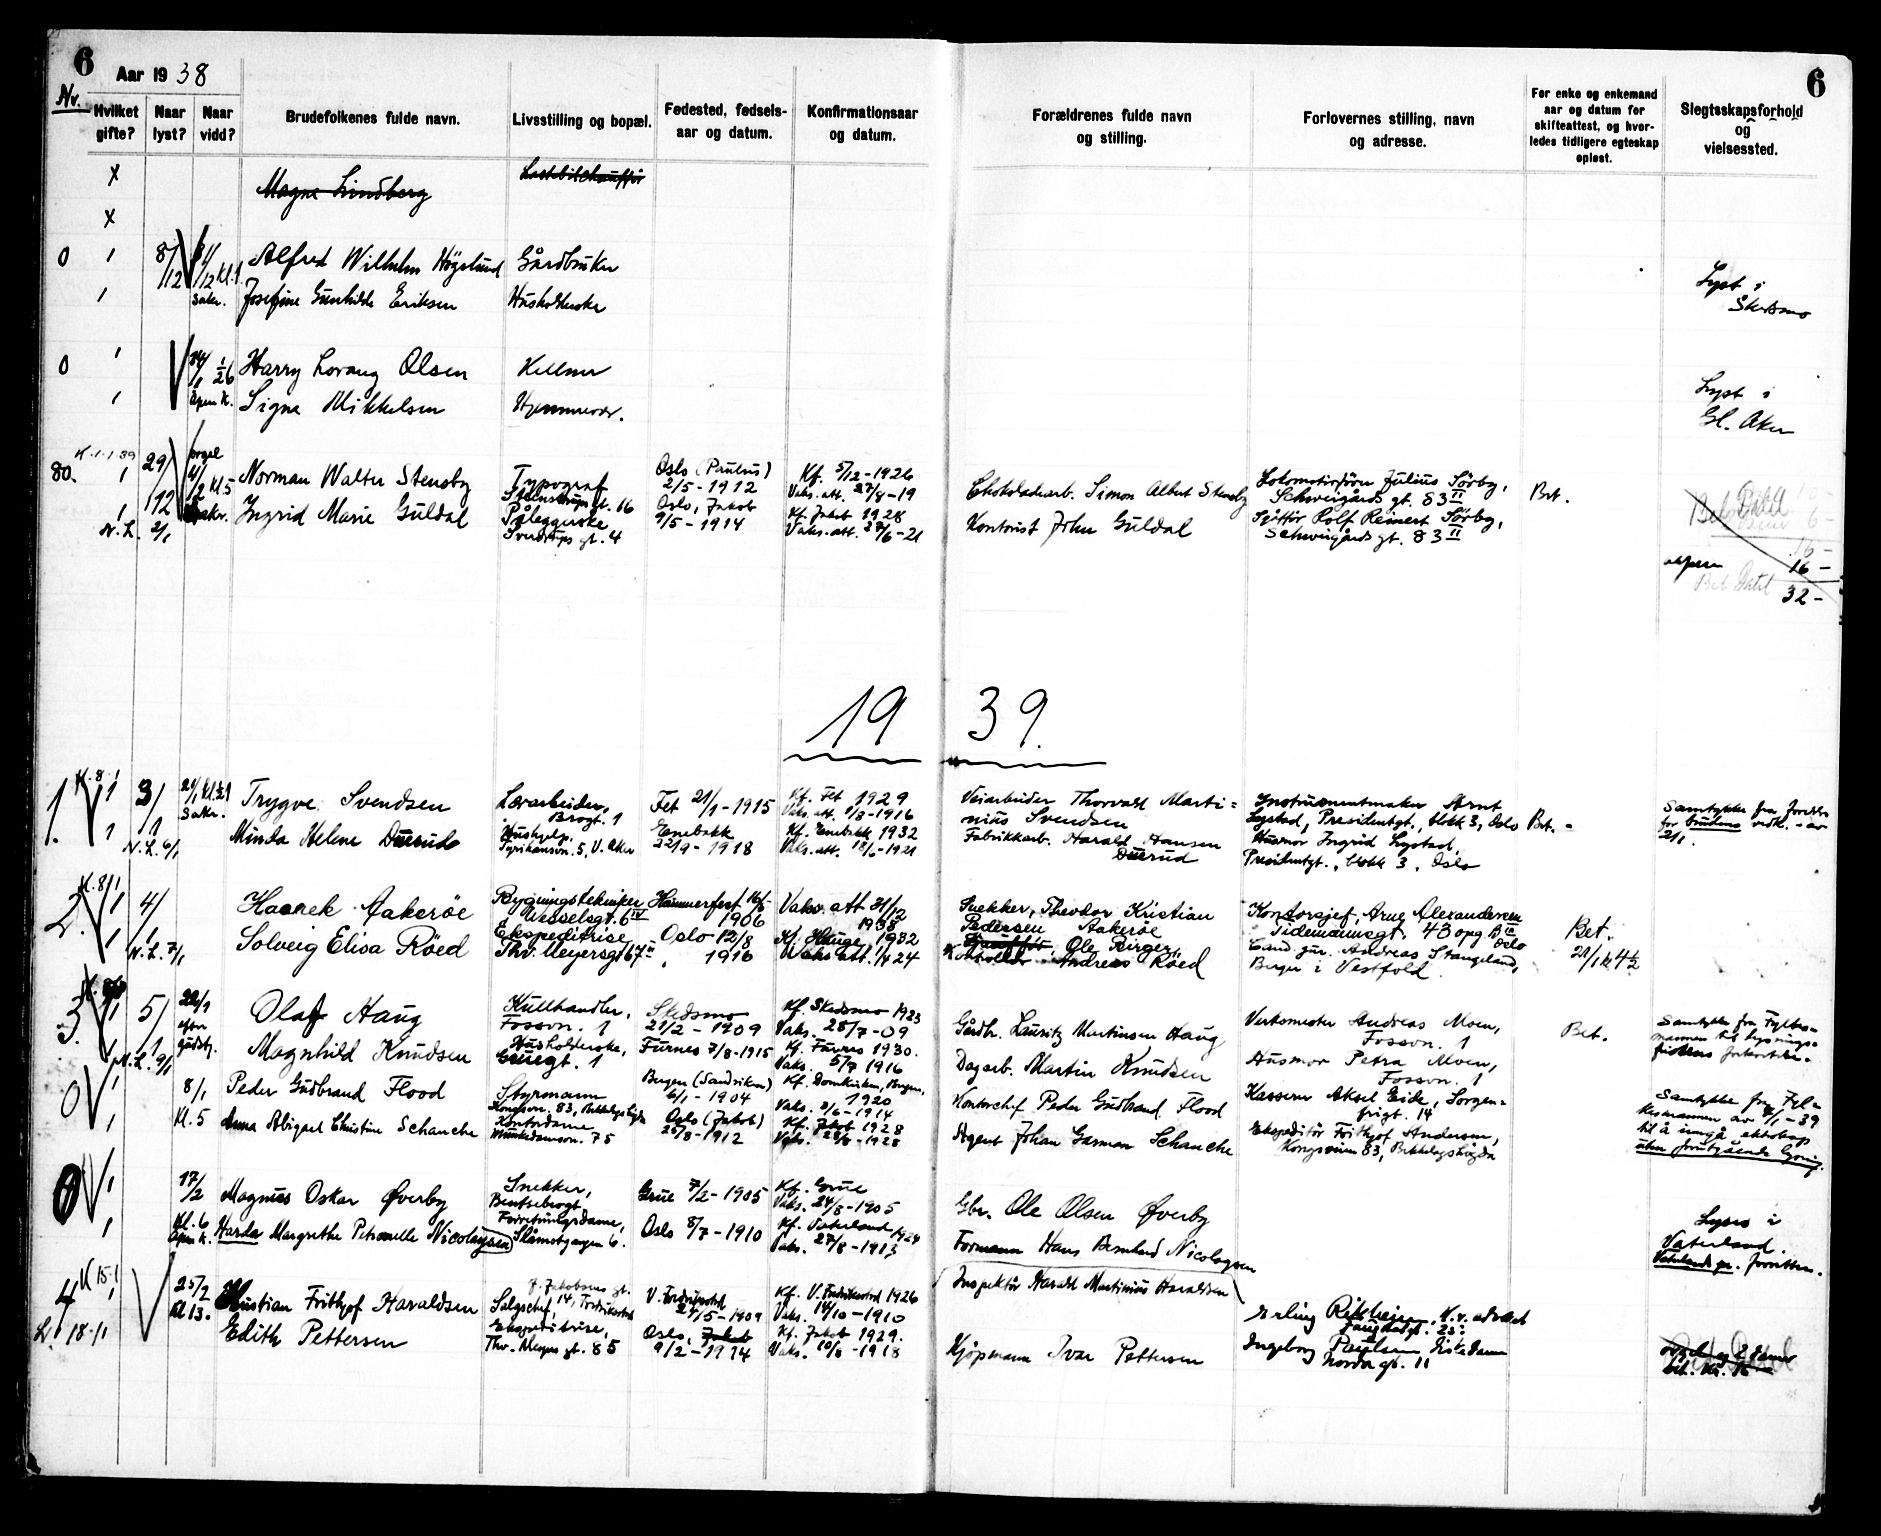 6
Aar 1938
6
Nr.
Hvilket gifte?
Naar lyst?
Naar vidd?
Brudefolkenes fulde navn.
Livsstilling og bopæl.
Fødested, fødsels-
aar og datum.
Konfirmationsaar
og datum.
Forældrenes fulde navn
og stilling.
Forlovernes stilling, navn
og adresse.
For enke og enkemand
aar og datum for
skifteattest, og hvor-
ledes tidligere egteskap
opløst.
Slegtsskapsforhold
og
vielsessted.
x
Magne Lindberg
Lastebilchauffør
x
0 1 8/12 Kl. 1 Alfred Wilhelm Högslund Gårdbruker
1 Saker. Josefine Gunhilde Eriksen Husholderske
Lyst i
Skedsmo
0 1 Harry Lorang Olsen Kellner
1 Åpen K. Signe Mikkelsen Hjemmevær.
Lyst i
Gl. Aker
80. 1 29/12 Kl 5 Norman Walter Stensby
Typograf
Steenstrups gt. 16
Oslo (Paulus)
2/5 - 1912
Kf. 5/12 - 1926
Vaks. att. 27/8 - 19
Chokoladearb. Simon Albert Stensby
Lokomotivfører Julius Sørby,
Schweigårds gt. 83 II
Bet.
1 Ingrid Marie Guldal
Påleggerske
Sverdrups gt. 4
Oslo, Jakob
9/5 - 1914
Kf. Jakob 1928
Vaks. att. 27/6 - 21
Kontorist John Guldal
Sjåfør Rolf Reinert Sørby,
Schweigårds gt. 83 II
N. L. 2/1
16 -
16 -
32 -
19 39.
1. K. 8-1 1 3/1 Trygve Svendsen
Lærarbeider,
Brogt. 1
Fet 21/1 - 1915
Kf. Fet 1929
Vaks. att. 1/8 - 1916
Veiarbeider Thorvald Marti=
nius Svendsen
Instrumentmaker Arnt
Lystad, Presidentgt., blokk 3, Oslo
Bet. -
Samtykke fra foreldre
for brudens vedk. - av
2/1.
1 N. L. 6/1 Minda Helene Duerud
Hushjelp.
Fyrikansvn. 5, V. Aker
Enebakk
22/9 - 1918
Kf. Enebakk 1932
Vaks. att. 12/6 - 1921
Fabrikkarb. Harald Hansen
Duerud
Husmor Ingrid Lystad,
Presidentgt., blokk 3, Oslo
2. K. 8/1 1 4/1 Haarek Aakerøe
Bygningstekniker
Wesselsgt. 6 IV
Hammerfest 16/5
1906
Vaks. att 31/12
1938
Snekker, Theodor Kristian
Pedersen Aakerøe
Kontorsjef Arne Alexandersen
Tidemannsgt. 43 opg B III
Oslo
Bet.
1 N. L. 7/1 Solveig Elisa Røed
Ekspeditrise
Thv. Meyersgt 67 II
Oslo 12/8
1916
Kf. Hauge 1932
Vaks att. 1/4 24
Sjauffør Ole Birger
Kontrollør Andreas Røed
Cand. jur. Andreas Stangeland,
Berger i Vestfold.
21/1 kl 4½
3. 1 5/1 22/1 efter gudstj. Olaf Haug
Kullhandler,
Fossvn. 1
Skedsmo
21/2 - 1909
Kf. Skedsmo 1923
Vaks. 28/7 - 09
Gårdbr. Lauritz Martinsen Haug
Verksmester Andreas Moen,
Fossvn. 1
Bet.
N. L. 9/1 Magnhild Knudsen
Husholderske,
gt. 1
Furnes 7/8 - 1915
Kf. Furnes 1930.
Vaks. 5/7 1916
Dagarb. Martin Knudsen
Husmor Petra Moen,
Fossvn. 1
0 1 8/1 Kl. 5 Peder Gudbrand Flood
Styrmann
Kongsvn. 83, Bekkelagshøgda
Bergen (Sandviken)
6/1 - 1904
Kf. Domkirken, Bergen,
1920
Vaks. 3/6 - 1914
Kontorchef Peder Gudbrand Flood
Kasserer Aksel Eide, Sorgen=
frigt. 14
Samtykke fra Fyl=
kesmannen av 7/1 - 39
til å inngå ekteskap
uten forutgående lysning.
1 Anna Abigael Christine Schanche
Kontordame
Munkedamsvn. 75
Oslo (Jakob)
25/8 - 1912
Kf. Jakob 1928
Vaks. 28/8 - 1928
Agent Johan Garman Schanche
Ekspeditør Frithjof Andersen,
Kongsveien 83, Bekkelagshøgda
0 1 17/2 Kl. 6 Åpen K. Magnus Oskar Øverby
Snekker,
Bentsebrogt.
Grue 7/2 - 1905
Kf. Grue
Vaks. 24/8 - 1905
Gbr. Ole Olsen Øverby
Lyses i
Vaterland.
1 Harda Margrethe Petronelle Nicolaysen
Forretningsdame,
Slåmotgangen 6.
Oslo 8/7 - 1910
Kf. Vaterland 1924
Vaks. 27/8 - 1913
Formann Hans Bernhard Nicolaysen
4 K 15-1 1 25/2 Kl 13. Kristian Frithjof Haraldsen
Salgschef,
14, Fredrikstad
V. Fredrikstad
27/5 - 1909
Kf. V. Fredrikstad 1926
Vaks. 14/10 - 1910
Inspektør Harald Martinius Haraldsen
L. 18-1 Edith Pettersen
Ekspeditrise,
Thv. Meyers gt. 85
Oslo, Jakob
9/2 - 1914
Kf. Jakob 1929.
Vaks. 10/8 - 1918
Kjøpmann Ivar Pettersen
Ingeborg Paulsen
Nordre gt. 11